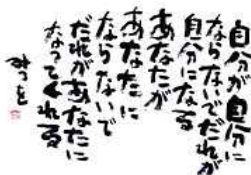 自分が自分に
ならないでだれが
自分になる
あなたが
あなたに
ならないで
だれがあなたに
なってくれる
みつを